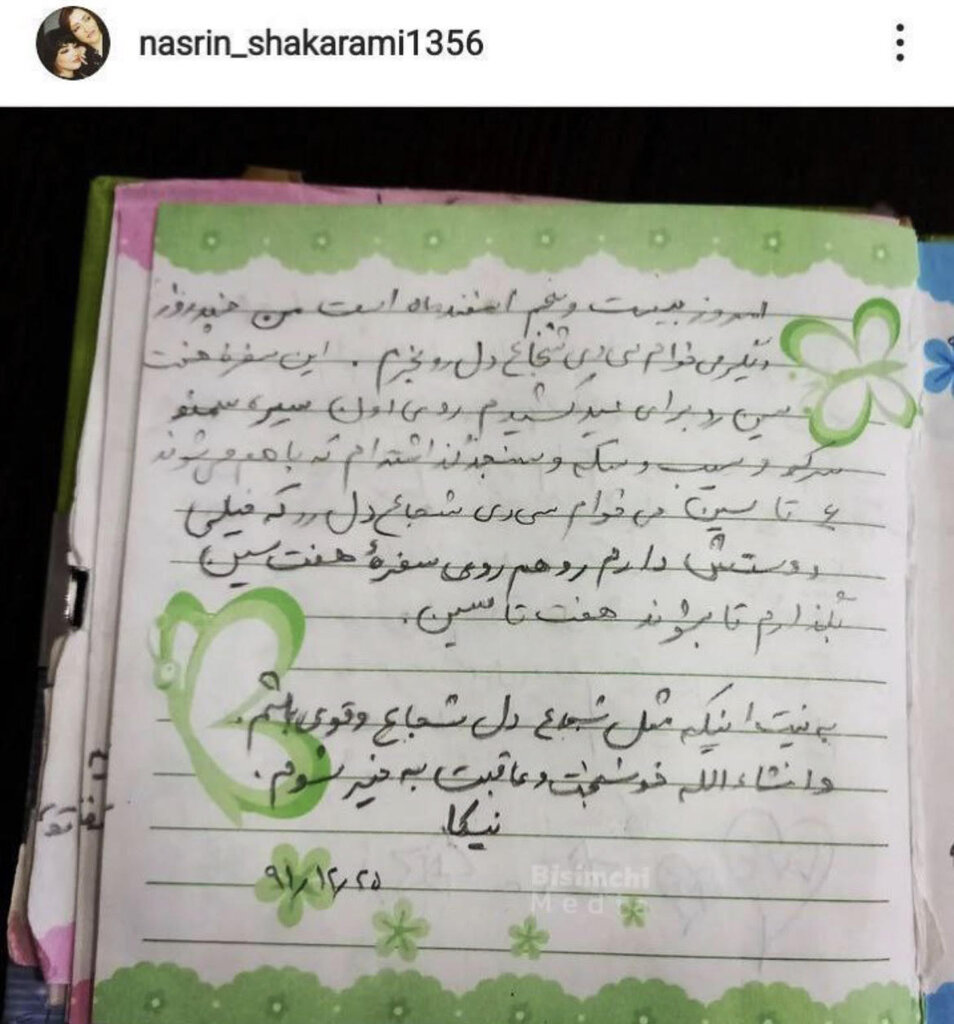 nasrin_shakarami1356
امروز بیست و پنجم اسفندماه است من چند روز
دیگر می خوام سی دی شجاع دل رو بخرم . این سفرهٔ هفت
سین رو برای عید کشیدم روی اون سیر، سمنو
سرکه و سیب و سکه و سنجد گذاشته ام که با هم می شوند
۶ تا سین می خوام سی دی شجاع دل رو که خیلی
دوستش دارم رو هم روی سفرهٔ هفت سین
بگذارم تا بشوند هفت تا سین .
به نیت اینکه مثل شجاع دل شجاع و قوی باشم .
و انشاءالله خوشبخت و عاقبت به خیر شوم .
نیکا
۹۱/۱۲/۲۵
Bisimchi
Media